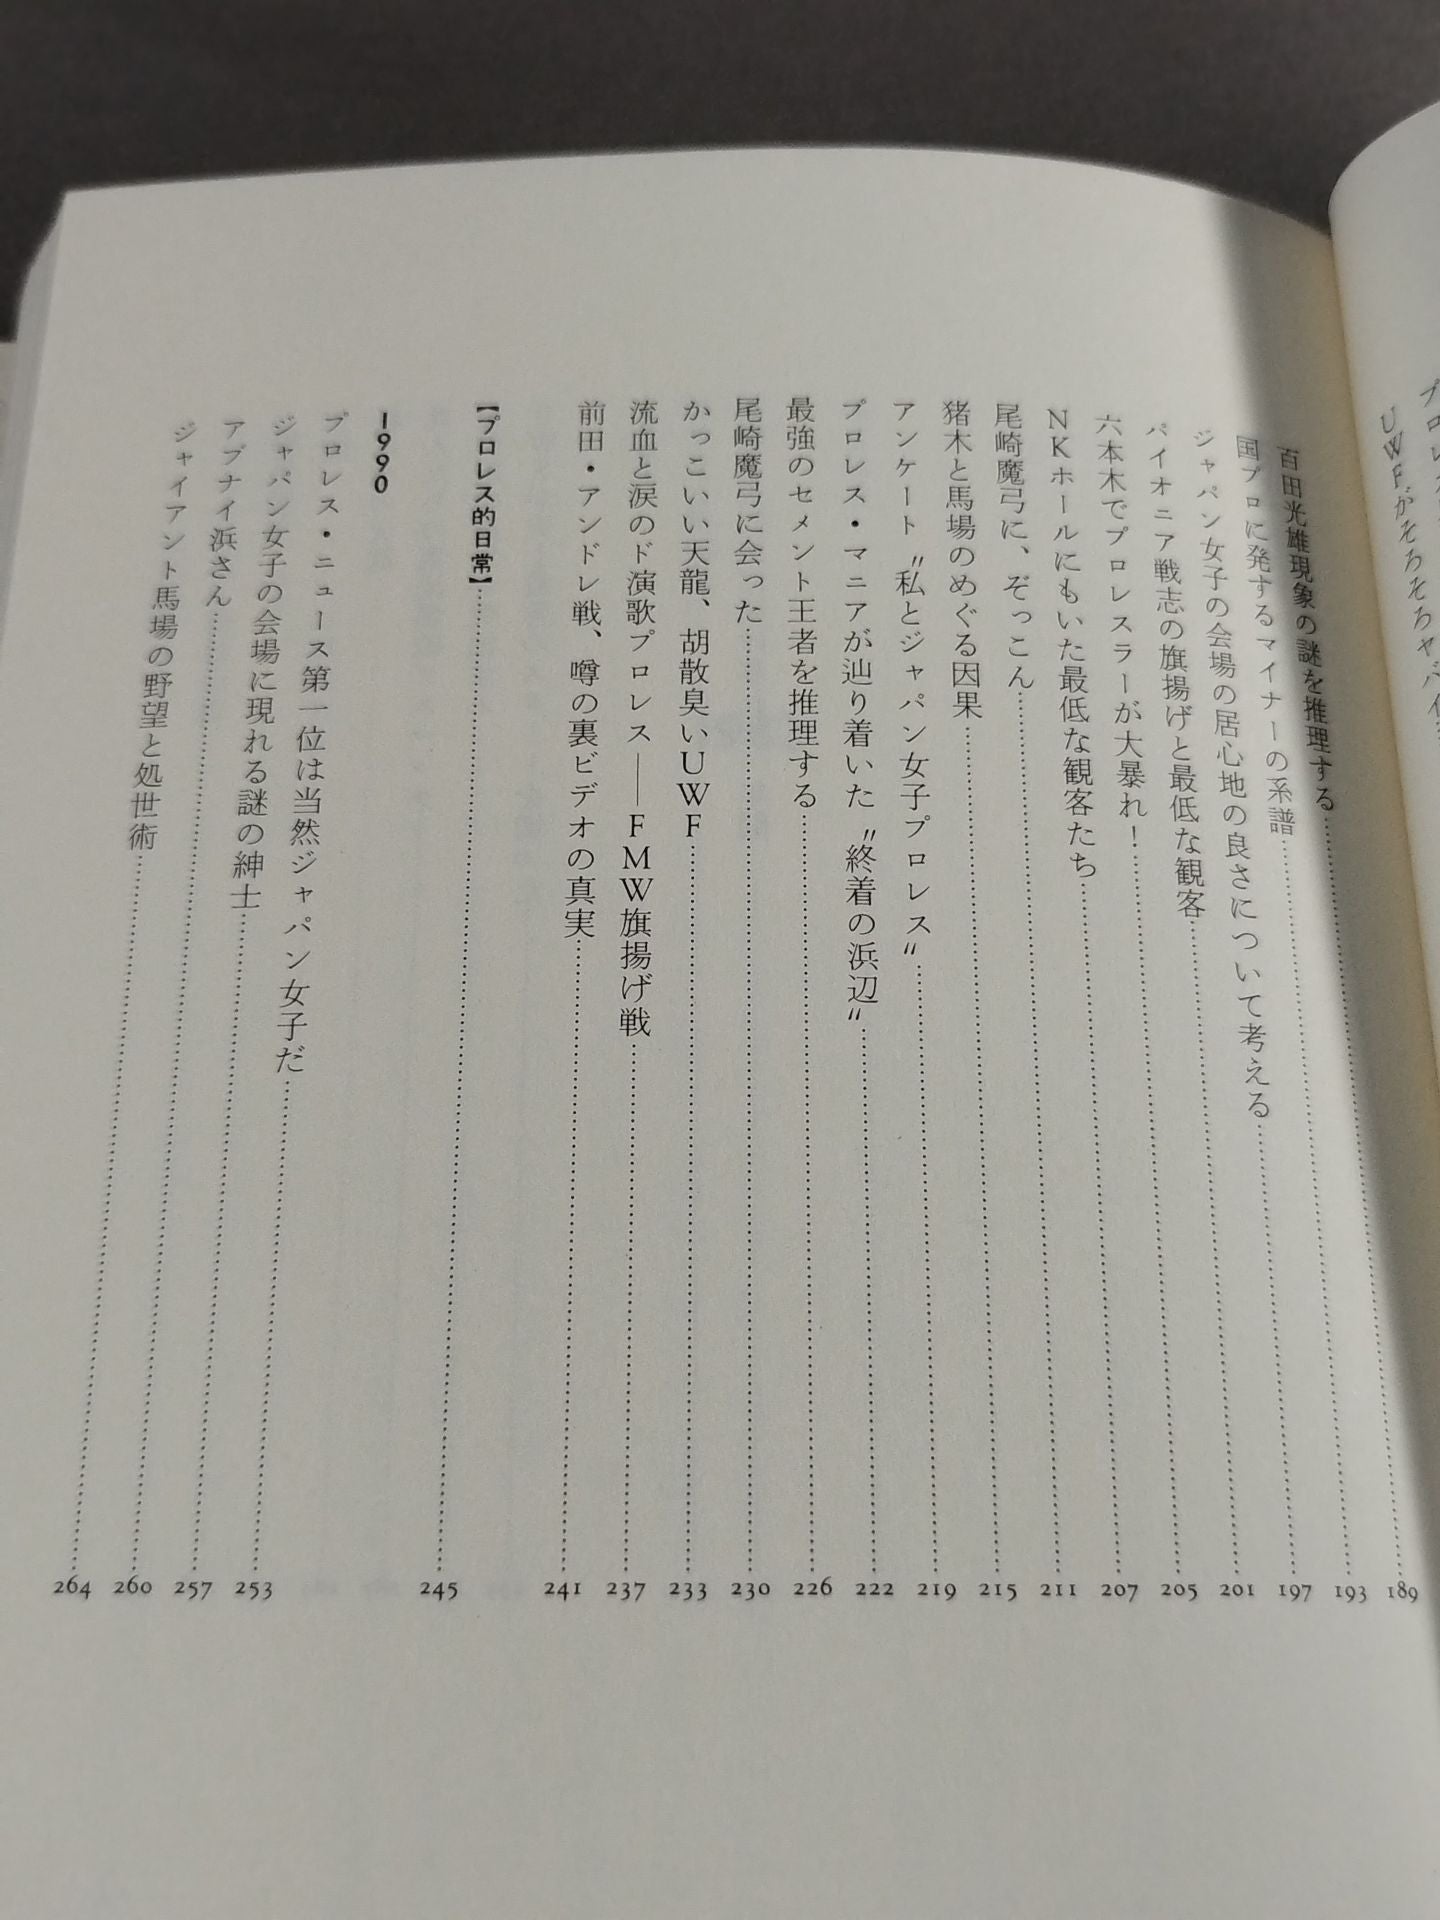 UWFがそろそろヤバイ
百田光雄現象の謎を推理する……189
国プロに発するマイナーの系譜……193
ジャパン女子の会場の居心地の良さについて考える……197
パイオニア戦志の旗揚げと最低な観客……201
六本木でプロレスラーが大暴れ!……205
NKホールにもいた最低な観客たち……207
尾崎魔弓に、ぞっこん……211
猪木と馬場のめぐる因果……215
アンケート〝私とジャパン女子プロレス〟……219
プロレス・マニアが辿り着いた〝終着の浜辺〟……222
最強のセメント王者を推理する……226
尾崎魔弓に会った……230
かっこいい天龍、胡散臭いUWF……233
流血と涙のド演歌プロレス——FMW旗揚げ戦……237
前田・アンドレ戦、噂の裏ビデオの真実……241
【プロレス的日常】……245
1990
プロレス・ニュース第一位は当然ジャパン女子だ……253
ジャパン女子の会場に現れる謎の紳士……257
アブナイ浜さん……260
ジャイアント馬場の野望と処世術……264